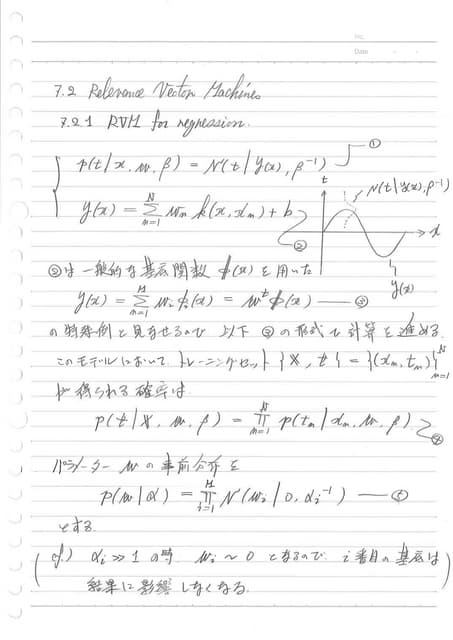 No.
Date
7.2 Relevance Vector Machines
7.2.1 RVM for regression.
p(t|x, w, β) = N(t|y(x), β⁻¹) ― ①
y(x) = Σ_{n=1}^{N} w_n k(x, x_n) + b ― ②
t
N(t|y(x), β⁻¹)
x
y(x)
②は 一般的な基底関数 φ(x) を用いた
y(x) = Σ_{i=1}^{M} w_i φ_i(x) = wᵗφ(x) ― ③
の特殊例と見なせるので 以下 ③の形式で計算を進める.
このモデルにおいて, トレーニングセット {X, t} = {(x_n, t_n)}_{n=1}^{N}
が得られる確率は
p(t|X, w, β) = Π_{n=1}^{N} p(t_n|x_n, w, β) ― ④
パラメーター w の事前分布を
p(w|α) = Π_{i=1}^{M} N(w_i|0, α_i⁻¹) ― ⑤
とする.
(cf.) α_i ≫ 1 の時 w_i ~ 0 となるので i番目の基底は
結果に影響しなくなる.)